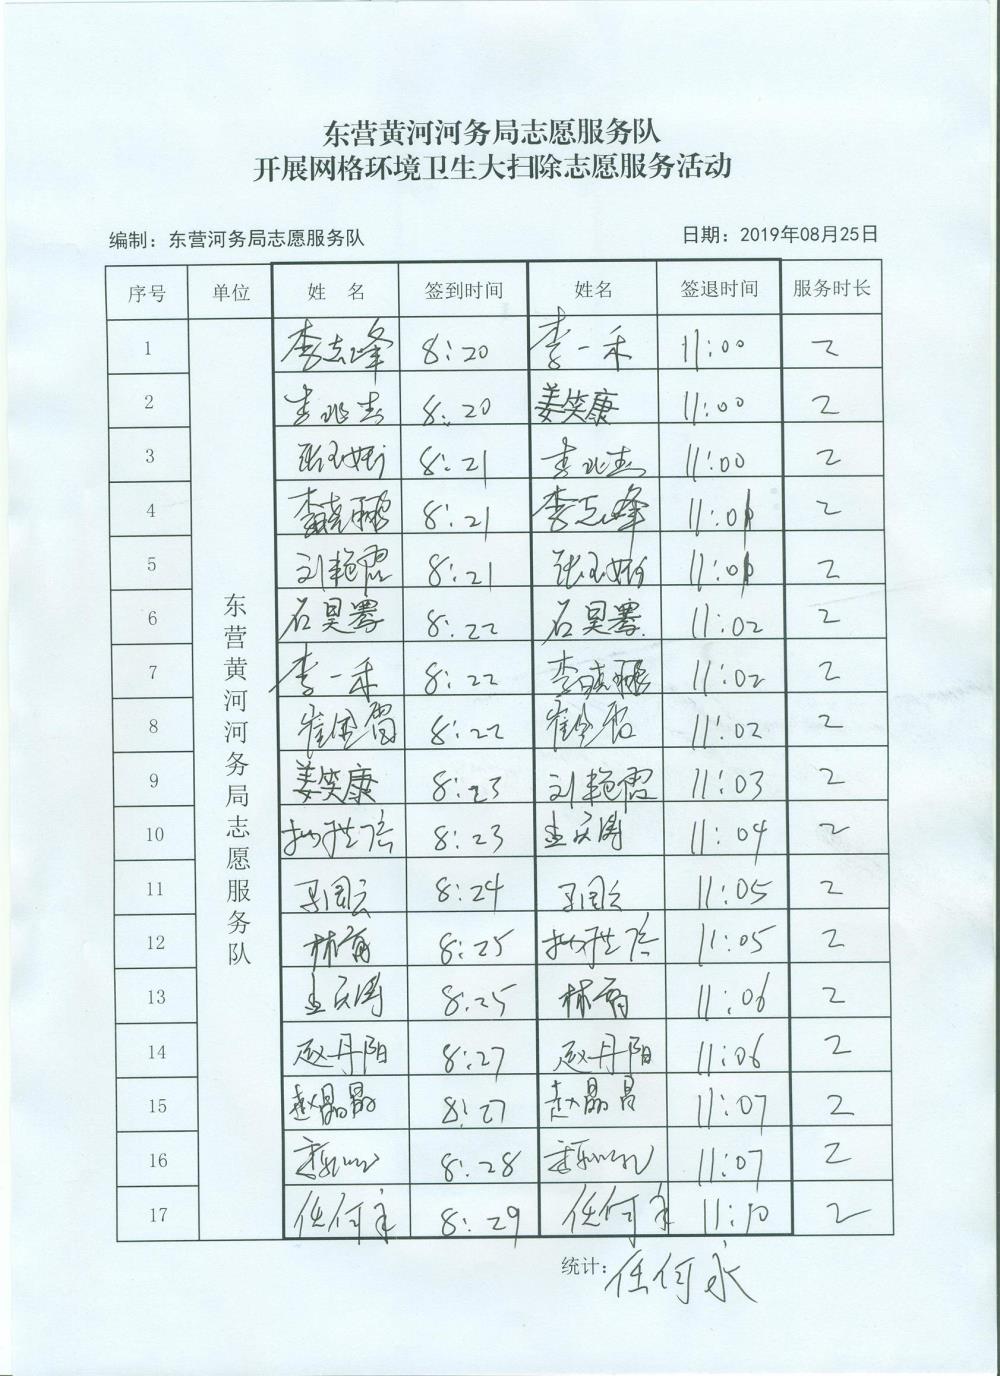 东营黄河河务局志愿服务队
开展网格环境卫生大扫除志愿服务活动
编制：东营河务局志愿服务队 日期：2019年08月25日
序号 单位 姓 名 签到时间 姓名 签退时间 服务时长
东营黄河河务局志愿服务队
1 李志峰 8:20 李一禾 11:00 2
2 李兆志 8:20 姜笑康 11:00 2
3 8:21 李兆志 11:00 2
4 李晓鹏 8:21 李志峰 11:01 2
5 刘艳霞 8:21 11:01 2
6 石昊署 8:22 石昊署 11:02 2
7 李一禾 8:22 李晓鹏 11:02 2
8 8:22 11:02 2
9 姜笑康 8:23 刘艳霞 11:03 2
10 8:23 11:04 2
11 8:24 11:05 2
12 8:25 11:05 2
13 8:25 11:06 2
14 赵丹阳 8:27 赵丹阳 11:06 2
15 赵晶晶 8:27 赵晶晶 11:07 2
16 8:28 11:07 2
17 任何永 8:29 任何永 11:10 2
统计：任何永